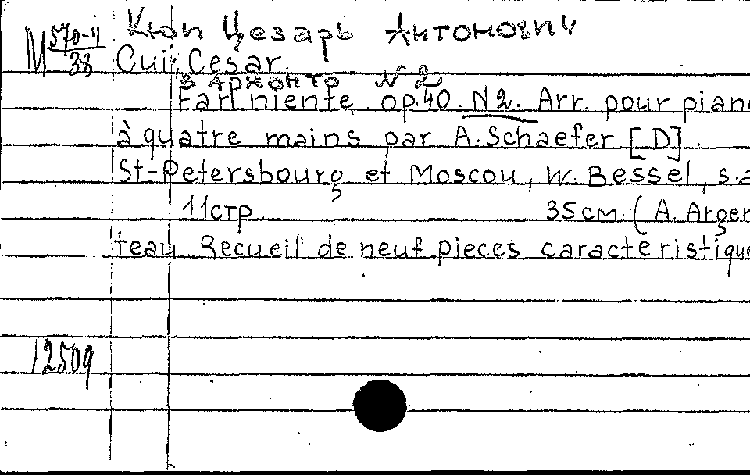 М 570-4/38 Кюи Цезарь Антонович
Cui, Cesar
Арконто № 2
Farniente op.40. N2. Arr. pour pian
à quatre mains par A. Schaefer [D]
St-Petersbourg et Moscou, W. Bessel, s.a
11стр 35см (A. Argen
teau Recueil de neuf pieces caracteristique
12509